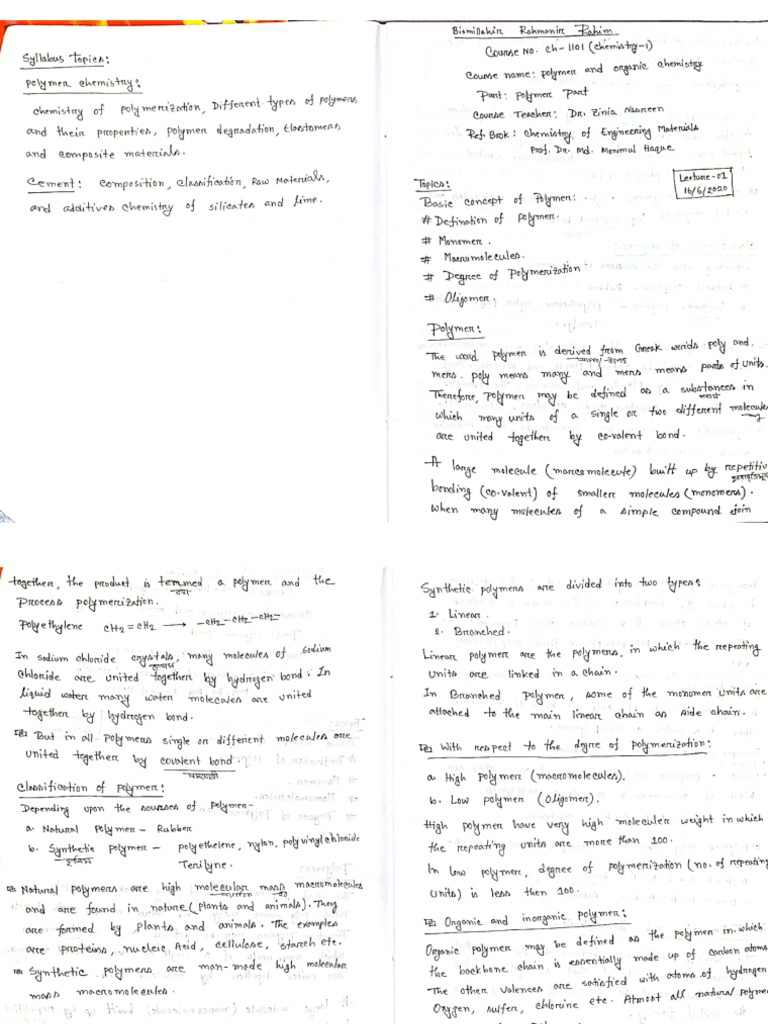 Syllabus Topics:
Polymer chemistry:
chemistry of polymerization, Different types of polymers
and their properties, polymer degradation, Elastomers
and composite materials.
Cement: Composition, Classification, Raw Materials,
and additives chemistry of silicates and lime.
Bismillahir Rahmanir Rahim
Course No. Ch-1101 (chemistry-1)
Course name: polymer and organic chemistry
Part: Polymer Part
Course Teacher: Dr. Zinia Nasreen
Ref. Book: Chemistry of Engineering Materials
Prof. Dr. Md. Monimul Haque
Lecture-01
16/6/2020
Topics:
Basic concept of Polymer:
# Defination of polymer.
# Monomer.
# Macromolecules.
# Degree of Polymerization
# Oligomer.
Polymer:
The word polymer is derived from Greak words poly and
mers. poly means many and mers means parts of units.
Therefore, Polymer may be defined as a substances in
which many units of a single or two different molecules
are united together by co-valent bond.
A large molecule (marcomolecute) built up by repetitive
bonding (co-valent) of smaller molecules (monomers).
When many molecules of a simple compound join
together, the product is termed a polymer and the
Process polymerization.
Polyethylene CH2=CH2 ⟶ -CH2-CH2-CH2-
In sodium chloride crystals, many molecules of sodium
chloride are united together by hydrogen bond. In
liquid water many water molecules are united
together by hydrogen bond.
But in all Polymers single or different molecules are
united together by covalent bond.
সমযোজী
Classification of polymer:
Depending upon the sources of Polymer-
a. Natural Polymer - Rubber
b. Synthetic polymer - polyethelene, nylon, polyvinylchloride
কৃত্রিম
Terilyne.
Natural polymers are high molecular mass macromolecules
and are found in nature (plants and animals). They
are formed by plants and animals. The examples
are proteins, nucleic Acid, cellulose, starch etc.
Synthetic polymers are man-made high molecular
mass macromolecules.
Synthetic polymers are divided into two types:
1. Linear.
2. Branched.
Linear polymer are the polymers, in which the repeating
units are linked in a chain.
In Branched Polymer, some of the monomer units are
attached to the main linear chain as side chain.
With respect to the degre of polymerization:
a. High Polymer (macromolecules).
b. Low polymer (Oligomer).
High polymer have very high moleculer weight in which
the repeating units are more than 100.
In low polymer, degree of polymerization (no. of repeating
units) is less then 100.
Organic and inorganic polymer:
Organic polymer may be defined as the polymer in which
the backbone chain is essentially made up of carbon atoms
The other valences are satisfied with atoms of hydrogen
Oxygen, sulfer, chlorine etc. Almost all natural polymer